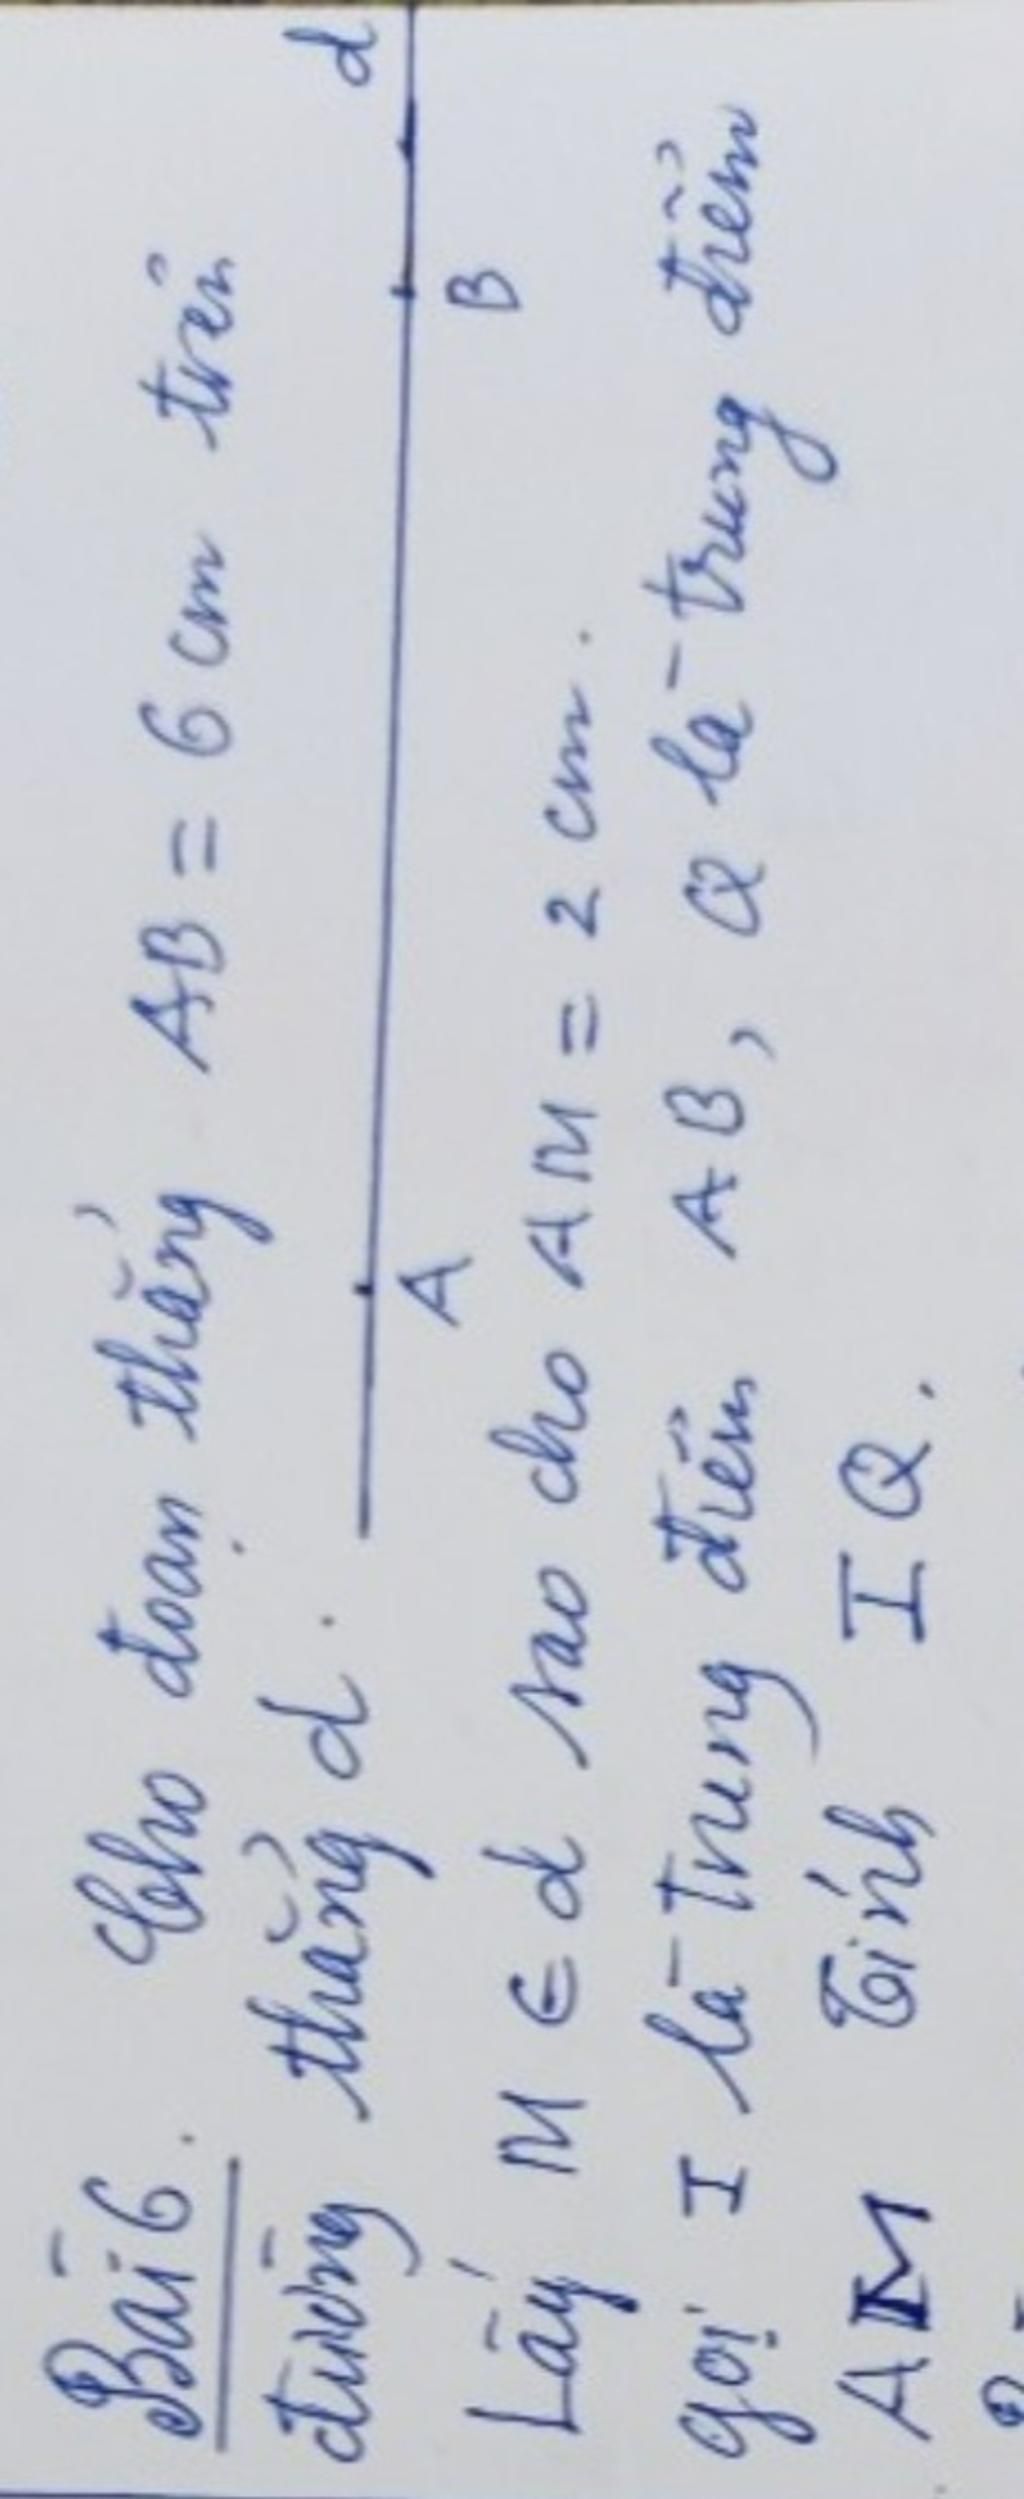 Bài 6. Cho đoạn thẳng AB = 6 cm trên
đường thẳng d.
d
A B
Lấy M ∈ d sao cho AM = 2 cm.
gọi I là trung điểm AB, Q là trung điểm
AM Tính IQ.